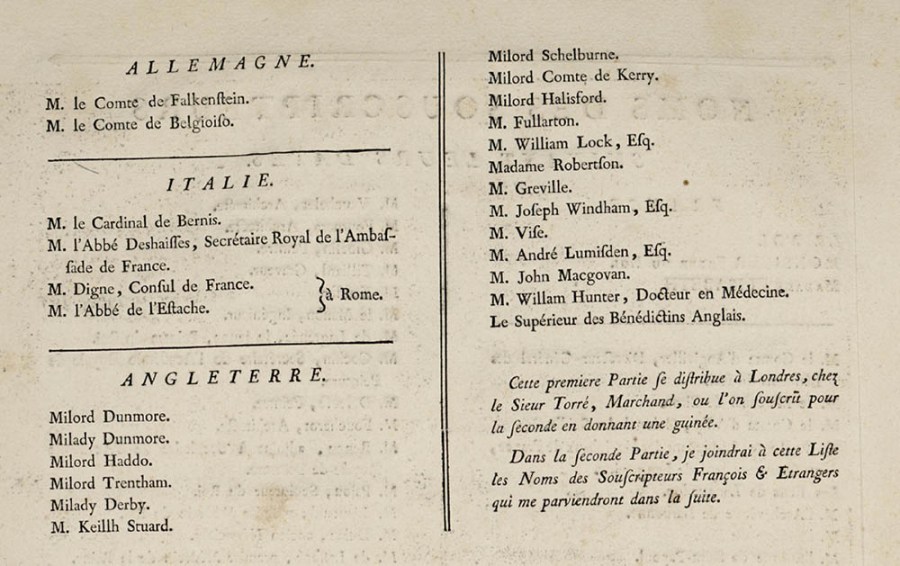 ALLEMAGNE.
M. le Comte de Falkenſtein.
M. le Comte de Belgioiſo.
ITALIE.
M. le Cardinal de Bernis.
M. l'Abbé Deshaiſſes, Secrétaire Royal de l'Ambaſ-
ſade de France.
M. Digne, Conſul de France.
M. l'Abbé de l'Eſtache.
à Rome.
ANGLETERRE.
Milord Dunmore.
Milady Dunmore.
Milord Haddo.
Milord Trentham.
Milady Derby.
M. Keillh Stuard.
Milord Schelburne.
Milord Comte de Kerry.
Milord Halisford.
M. Fullarton.
M. William Lock, Eſq.
Madame Robertſon.
M. Greville.
M. Joſeph Windham, Eſq.
M. Viſe.
M. André Lumiſden, Eſq.
M. John Macgovan.
M. Willam Hunter, Docteur en Médecine.
Le Supérieur des Bénédictins Anglais.
Cette premiere Partie ſe diſtribue à Londres, chez
le Sieur Torré, Marchand, ou l'on ſouſcrit pour
la ſeconde en donnant une guinée.
Dans la ſeconde Partie, je joindrai à cette Liſte
les Noms des Souſcripteurs François & Etrangers
qui me parviendront dans la ſuite.